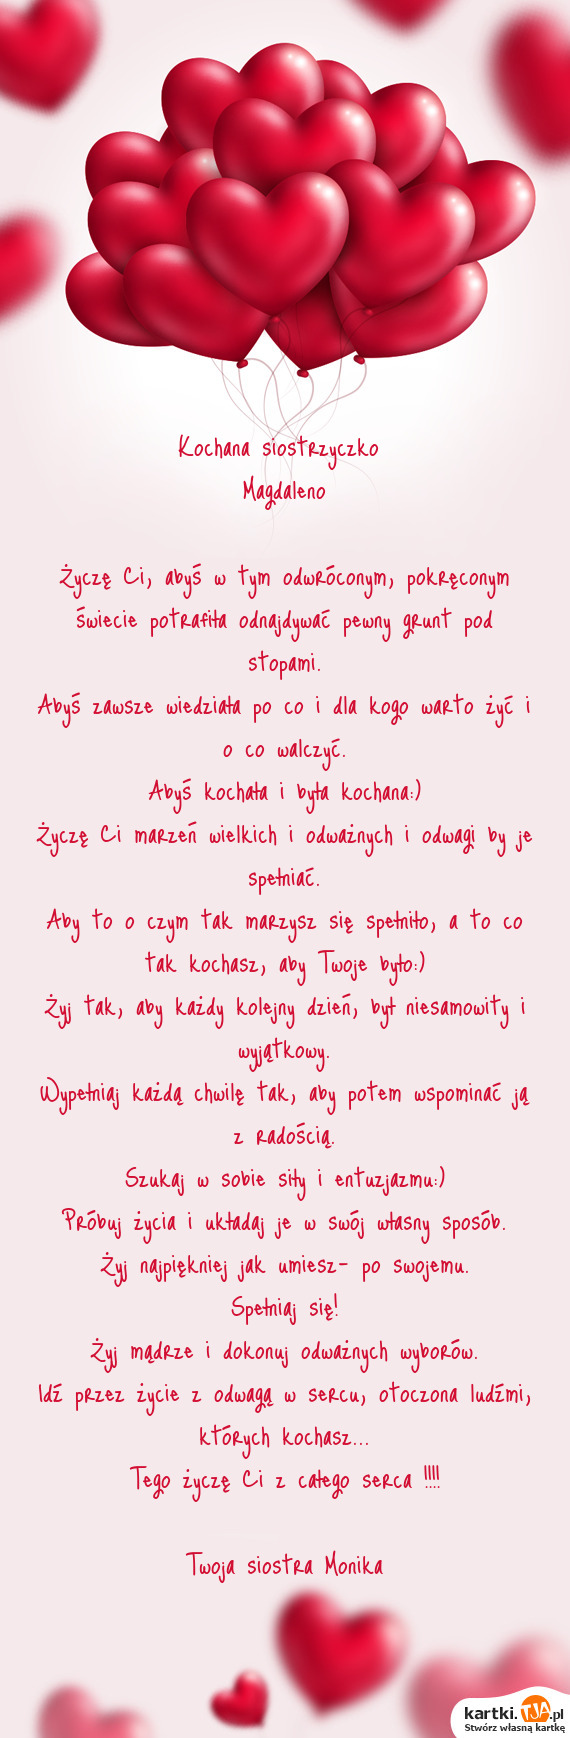 Kochana siostrzyczko
Magdaleno
Życzę Ci, abyś w tym odwróconym, pokręconym
świecie potrafiła odnajdywać pewny grunt pod
stopami.
Abyś zawsze wiedziała po co i dla kogo warto żyć i
o co walczyć.
Abyś kochała i była kochana:)
Życzę Ci marzeń wielkich i odważnych i odwagi by je
spełniać.
Aby to o czym tak marzysz się spełniło, a to co
tak kochasz, aby Twoje było:)
Żyj tak, aby każdy kolejny dzień, był niesamowity i
wyjątkowy.
Wypełniaj każdą chwilę tak, aby potem wspominać ją
z radością.
Szukaj w sobie siły i entuzjazmu:)
Próbuj życia i układaj je w swój własny sposób.
Żyj najpiękniej jak umiesz- po swojemu.
Spełniaj się!
Żyj mądrze i dokonuj odważnych wyborów.
Idź przez życie z odwagą w sercu, otoczona ludźmi,
których kochasz...
Tego życzę Ci z całego serca !!!!
Twoja siostra Monika
kartki.TJA.pl
Stwórz własną kartkę